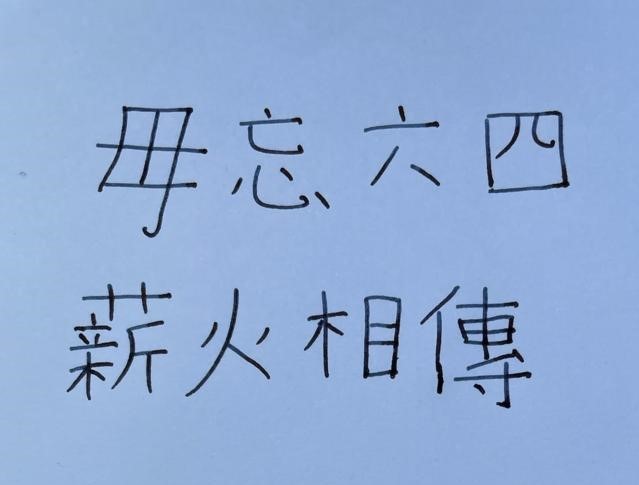 毋忘六四
薪火相傳